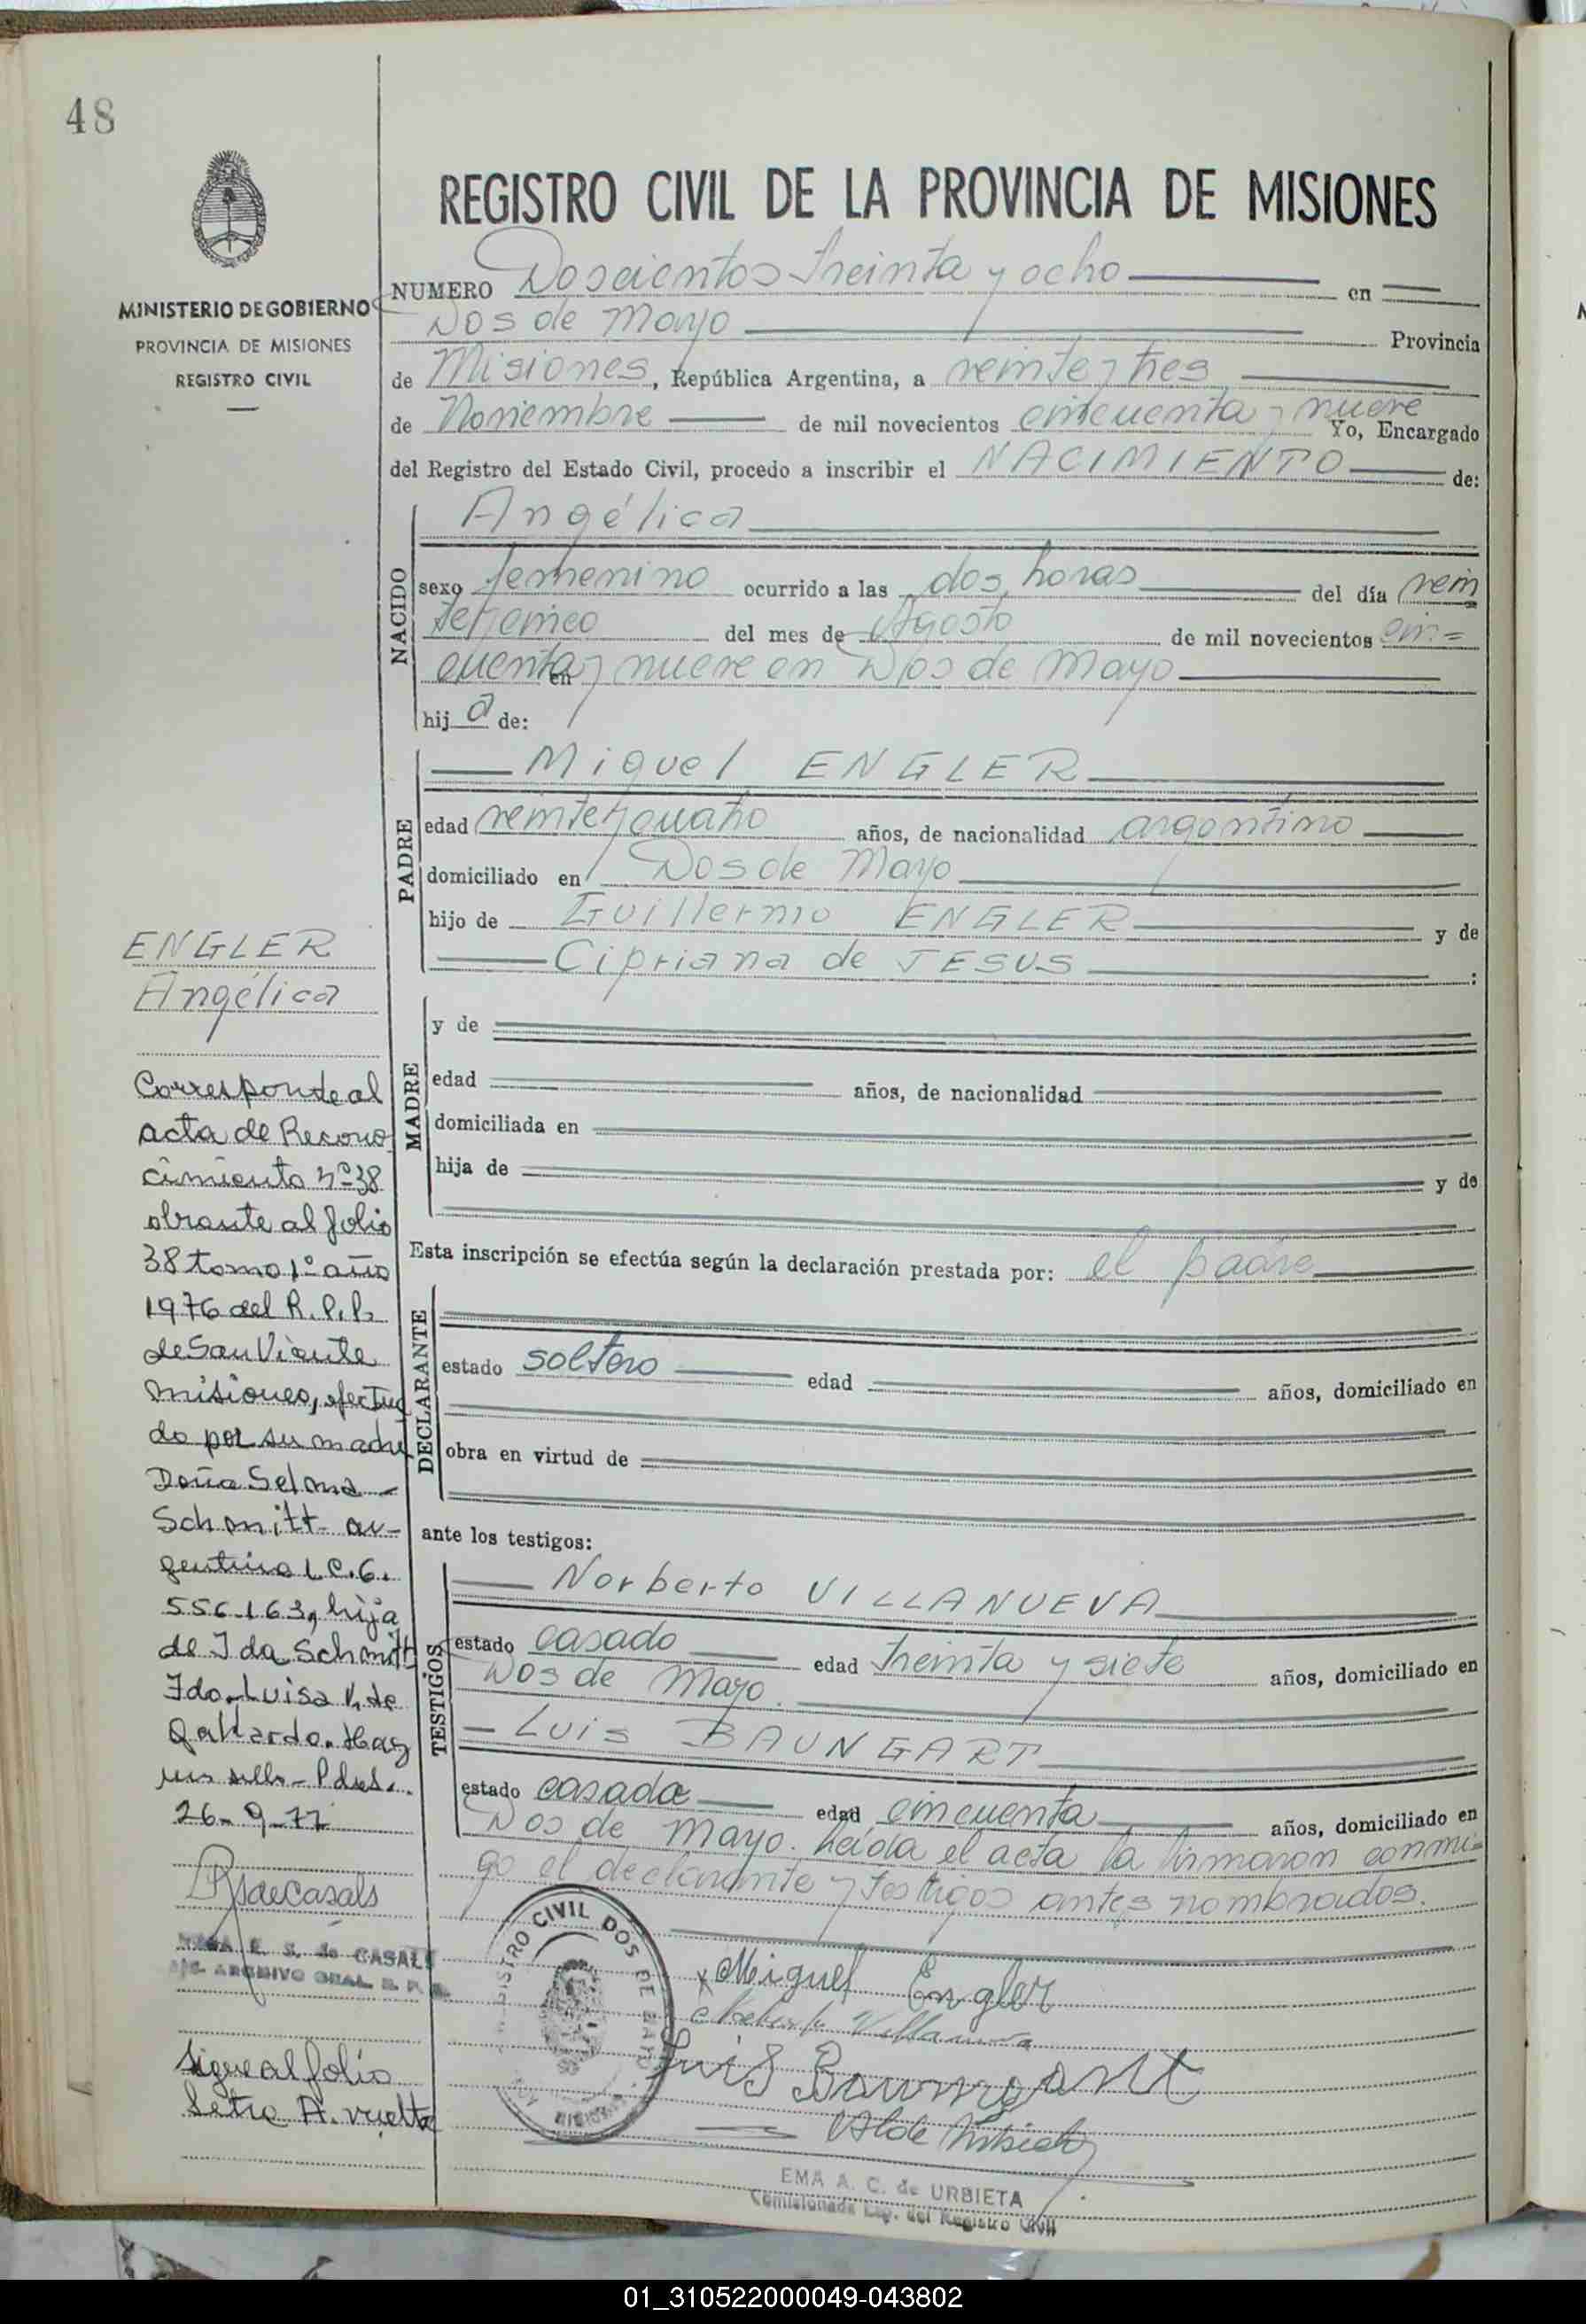 48
MINISTERIO DE GOBIERNO
PROVINCIA DE MISIONES
REGISTRO CIVIL
REGISTRO CIVIL DE LA PROVINCIA DE MISIONES
NUMERO Doscientos treinta y ocho en
Dos de Mayo Provincia
de Misiones, República Argentina, a veinte y tres
de Noviembre de mil novecientos cincuenta y nueve Yo, Encargado
del Registro del Estado Civil, procedo a inscribir el NACIMIENTO de:
NACIDO
Angélica
sexo femenino ocurrido a las dos horas del día vein
te y cinco del mes de Agosto de mil novecientos cin=
cuenta y nueve en Dos de Mayo
en
hij a de:
PADRE
Miguel ENGLER
edad veinte y cuatro años, de nacionalidad argentino
domiciliado en Dos de Mayo
hijo de Guillermo ENGLER y de
Cipriana de JESUS :
MADRE
y de
edad años, de nacionalidad
domiciliada en
hija de y de
Esta inscripción se efectúa según la declaración prestada por: el padre
DECLARANTE
estado soltero edad años, domiciliado en
obra en virtud de
ante los testigos:
TESTIGOS
Norberto VILLANUEVA
estado casado edad treinta y siete años, domiciliado en
Dos de Mayo.
Luis BAUNGART
estado casado edad cincuenta años, domiciliado en
Dos de Mayo. Leida el acta la firmaron conmi=
go el declarante y testigos antes nombrados.
ENGLER
Angélica
Corresponde al
acta de Recono
cimiento nº 38
obrante al folio
38 tomo 1º año
1976 del R.P.P.
de San Vicente
Misiones, efectua
do por su madre
Doña Selma
Schmitt ar-
gentina L.C. 6.
556.163, hija
de Ida Schmitt
Fdo. Luisa V. de
Gallardo. Hay
un sello - Pdas.
26-9-77
de CASALS
ARCHIVO GRAL. R. P.
Sigue al folio
Letra A. vuelta
REGISTRO CIVIL DOS DE MAYO
MISIONES
Miguel Engler
Norberto Villanueva
Luis Baumgart
EMA A. C. de URBIETA
Comisionada Esp. del Registro Civil
01_310522000049-043802